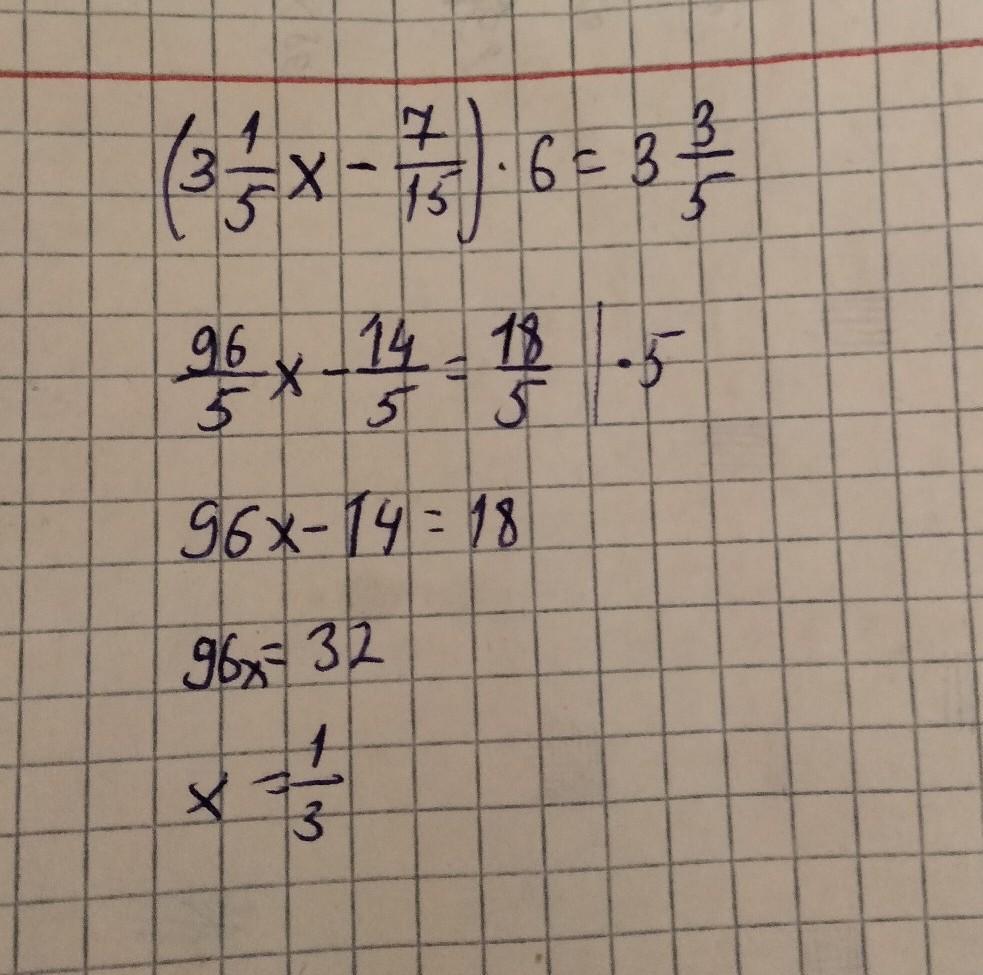 (3 1/5 x - 7/15) · 6 = 3 3/5
96/5 x - 14/5 = 18/5 | · 5
96x - 14 = 18
96x = 32
x = 1/3